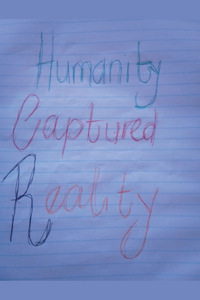 Humanity
Captured
Reality